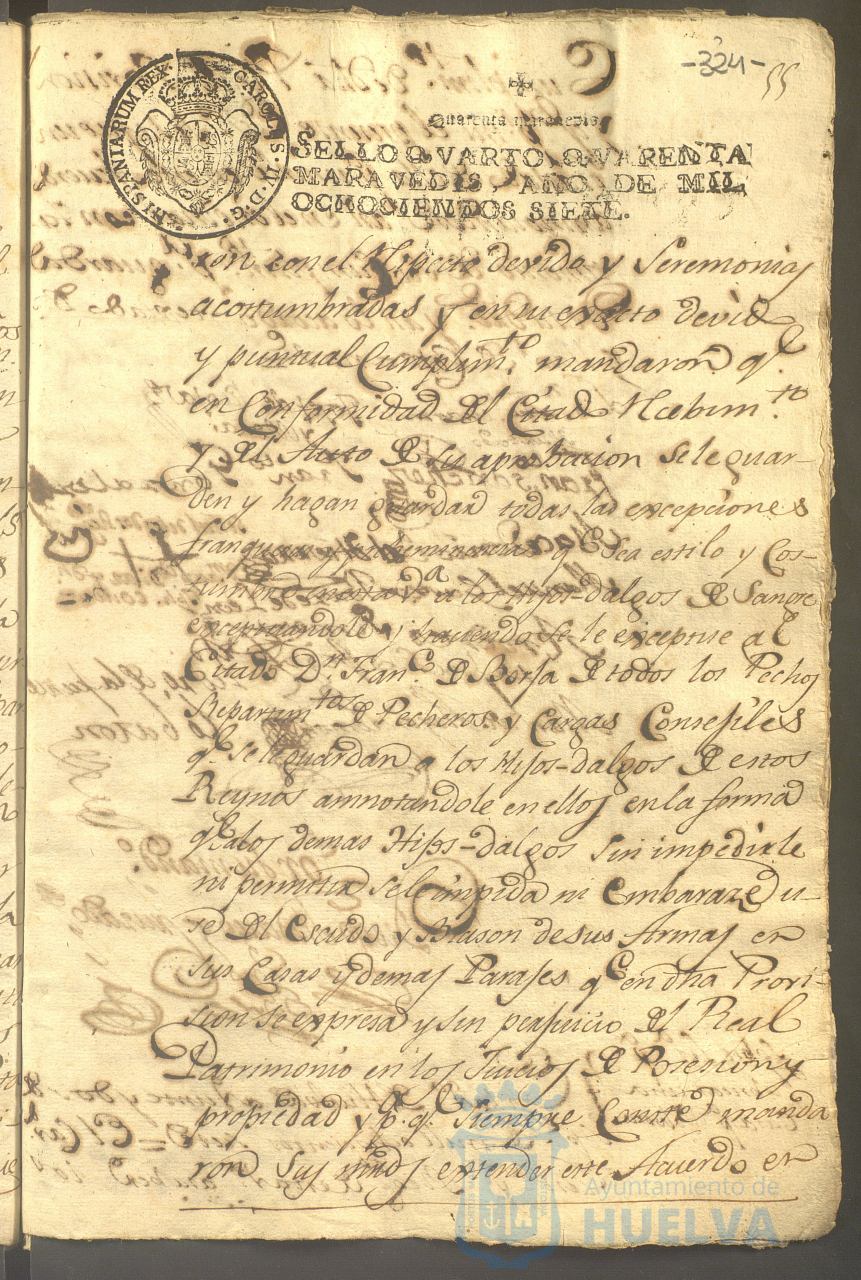 -324- 55
HISPANIARUM REX CAROLUS IV D G
Quarenta maravedis
SELLO QVARTO, QVARENTA
MARAVEDIS, AÑO DE MIL
OCHOCIENTOS SIETE.
ron con el Respecto devido y Seremonias
acostumbradas y en su exacto devido
y puntual Cumplim.to mandaron q.e
en Conformidad del Citado Recibim.to
y del Auto de su aprobacion se le guar-
den y hagan guardar todas las excepciones
franquezas y preheminencias q.e sea estilo y Cos-
tumbre en esta V.a a los Hijos-dalgos de Sangre
exceptuandole y haciendo se le exceptue al
Citado D.n Fran.co de Borja de todos los Pechos
Repartim.tos de Pecheros y Cargas Consejiles
q.e se le guardan a los Hijos-dalgos de estos
Reynos annotandole en ellos en la forma
q.e a los demas Hijos-dalgos sin impedirle
ni permitir se le impida ni embaraze u-
se del Escudo y Blason de sus Armas en
sus Casas y demas Parajes q.e en dha Provi-
sion se expresa y sin perjuicio del Real
Patrimonio en los Juicios de Posesion y
propiedad y p.a q.e siempre Conste manda
ron sus mrds extender este Acuerdo en
Ayuntamiento de
HUELVA